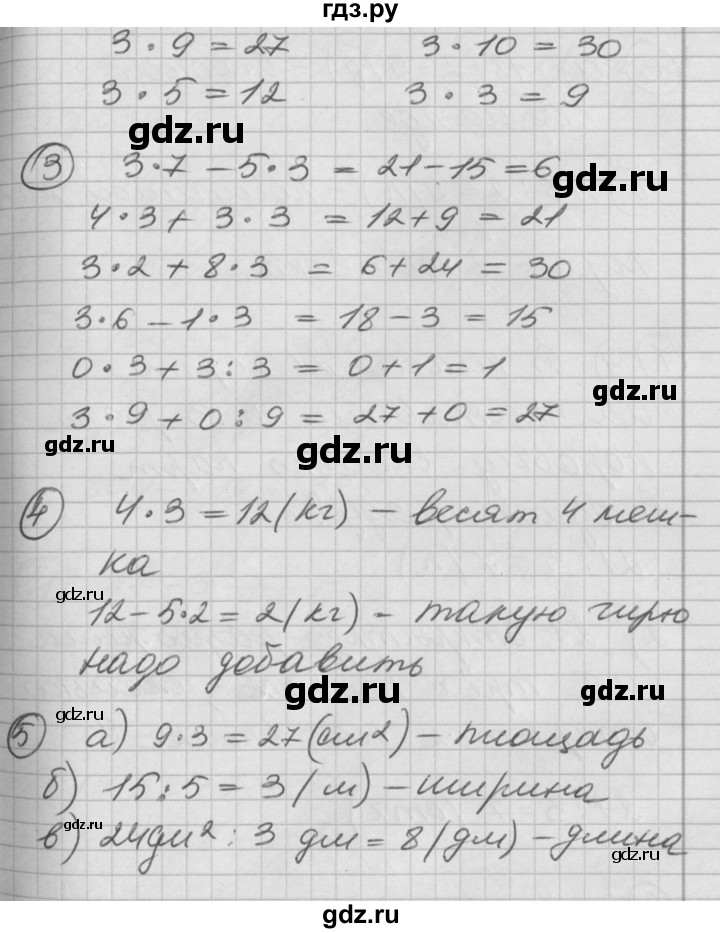 гдз.ру
3 · 9 = 27 3 · 10 = 30
3 · 5 = 12 3 · 3 = 9
gdz.ru
3 3·7 – 5·3 = 21 – 15 = 6
gdz.ru
4·3 + 3·3 = 12 + 9 = 21
3·2 + 8·3 = 6 + 24 = 30
3·6 – 1·3 = 18 – 3 = 15
0·3 + 3:3 = 0 + 1 = 1
gdz.ru
3·9 + 0:9 = 27 + 0 = 27
gdz.ru gdz.ru
4 4·3 = 12 (кг) – весят 4 меш-
ка
gdz.ru
12 – 5·2 = 2 (кг) – такую гирю
надо добавить
gdz.ru gdz.ru
gdz.ru
5 а) 9·3 = 27 (см²) – площадь
б) 15:5 = 3 (м) – ширина
gdz.ru
в) 24дм² : 3 дм = 8 (дм) – длина
gdz.ru
gdz.ru